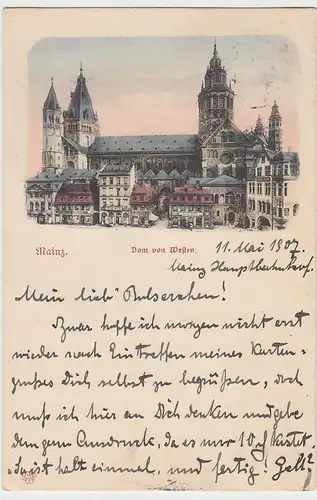 Mainz. Dom von Westen. 11. Mai 1907.
Mainz Hauptbahnhof.
Mein lieb' !
Zwar hoffe ich morgen nicht erst
wieder nach Eintreffen meines Karten-
grußes Dich selbst zu begrüßen, doch
muß ich hier an Dich denken und gebe
dem gern Ausdruck, da es nur 10 ₰ kostet.
ist halt einmal, und fertig! Gell?